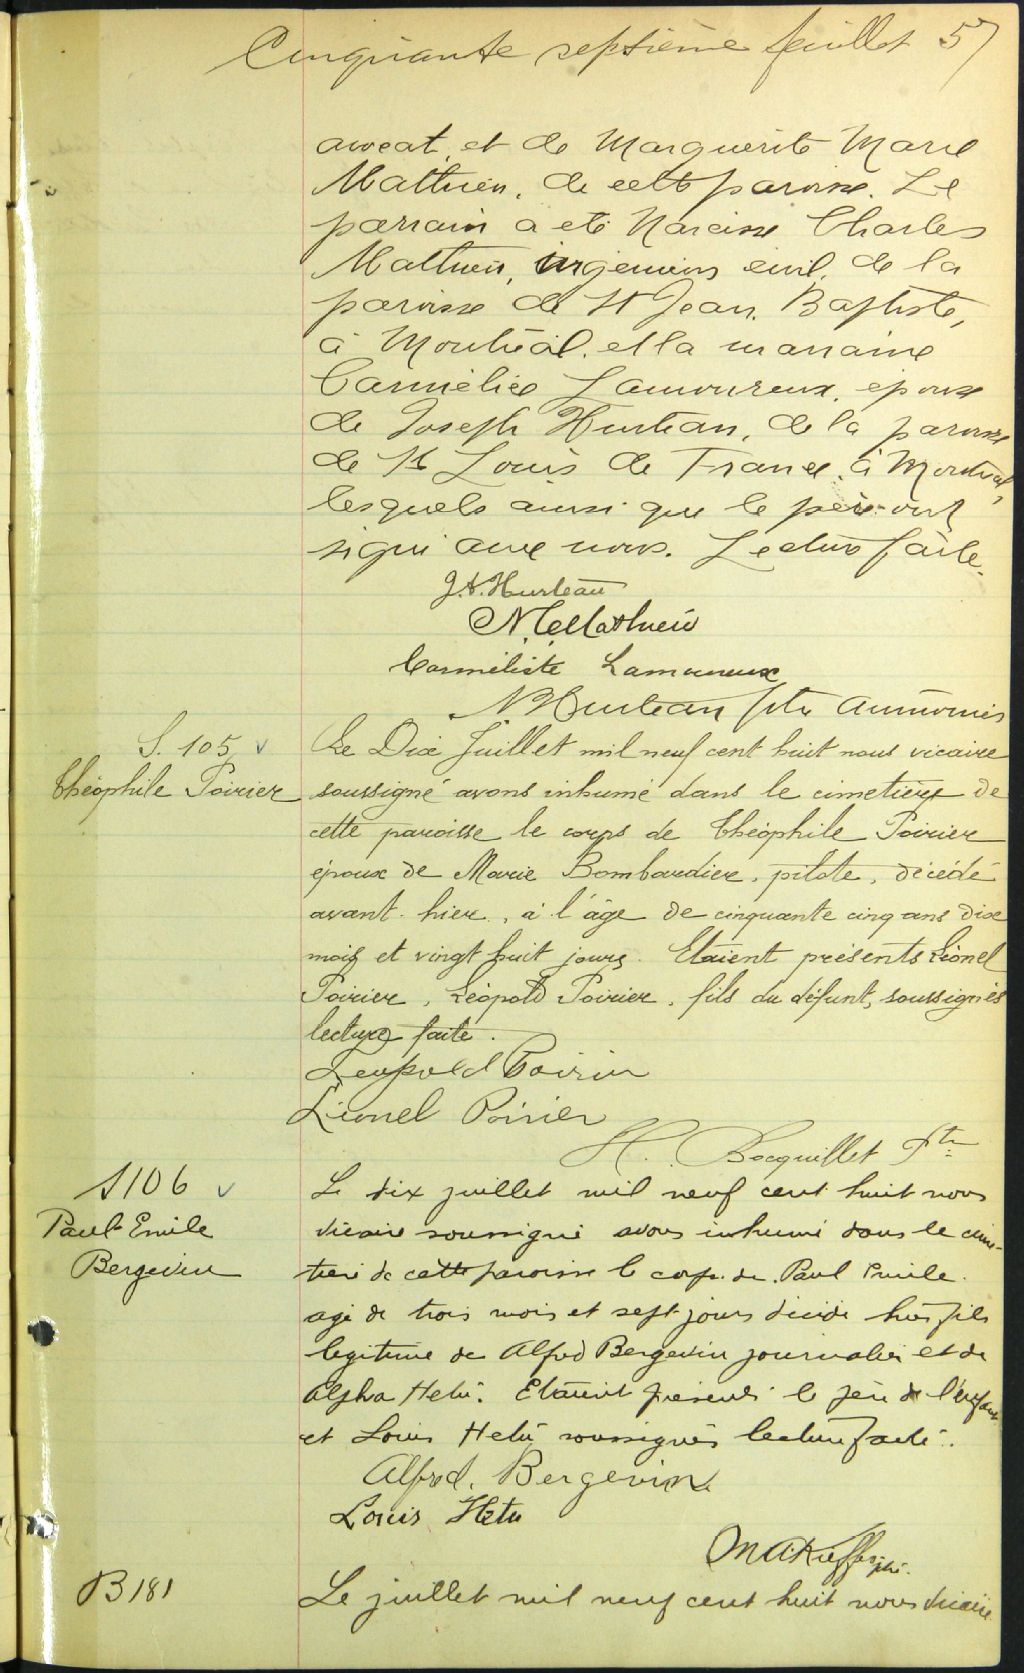 Cinquante septième feuillet 57
avocat, et de Marguerite Marie
Mathieu, de cette paroisse. Le
parrain a été Narcisse Charles
Mathieu, ingenieur civil, de la
paroisse de St Jean Baptiste,
à Montréal, et la marraine
Carmélice Lamoureux, épouse
de Joseph Hurteau, de la paroisse
de St Louis de France, à Montréal,
lesquels ainsi que le père ont
signé avec nous. Lecture faite.
J.A. Hurteau
N.C. Mathieu
Carméliste Lamoureux
N Hurteau ptre
S. 105
Théophile Poirier
Le Dix Juillet mil neuf cent huit nous vicaire
soussigné avons inhumé dans le cimetière de
cette paroisse le corps de Théophile Poirier
époux de Marie Bombardier, pilote, décédé
avant-hier, à l'âge de cinquante cinq ans dix
mois et vingt huit jours. Etaient présents Léonel
Poirier, Léopold Poirier, fils du défunt, soussignés
lecture faite.
Leopold Poirier
Lionel Poirier
H. Bocquillet Ptre
S106
Paul Emile
Bergevin
Le dix juillet mil neuf cent huit nous
vicaire soussigné avons inhumé dans le cime-
tière de cette paroisse le corps de Paul Emile
agé de trois mois et sept jours décédé hier fils
legitime de Alfred Bergevin journalier et de
Alpha Hetu. Etaient présents le père de l'enfant
et Louis Hetu soussignés lecture faite.
Alfred. Bergevin
Louis Hetu
ptre.
B181
Le juillet mil neuf cent huit nous vicaire